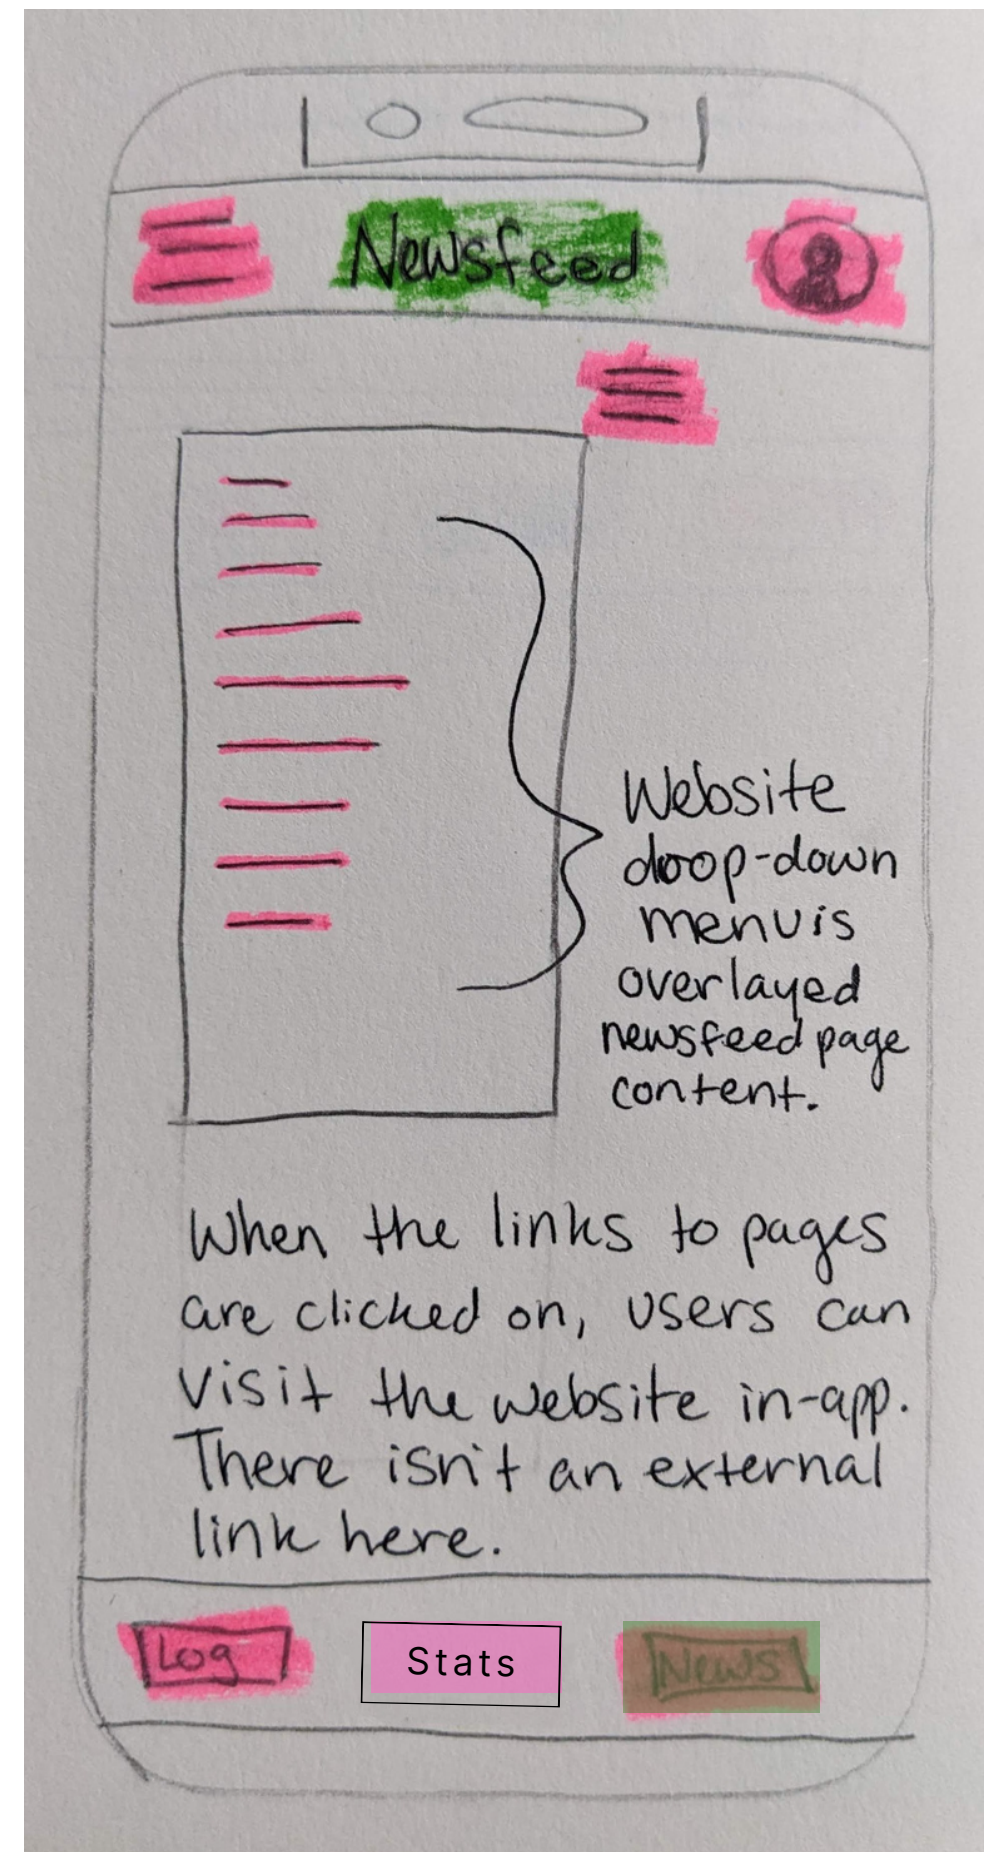 Newsfeed
Website
drop-down
menu is
overlayed
newsfeed page
content.
When the links to pages
are clicked on, users can
visit the website in-app.
There isn't an external
link here.
Log Stats News